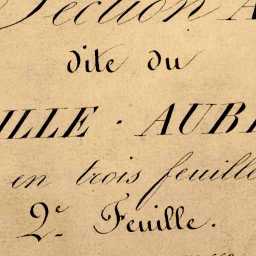 Section A
dite du
ILLE · AUBR
en trois feuille
2e Feuille.